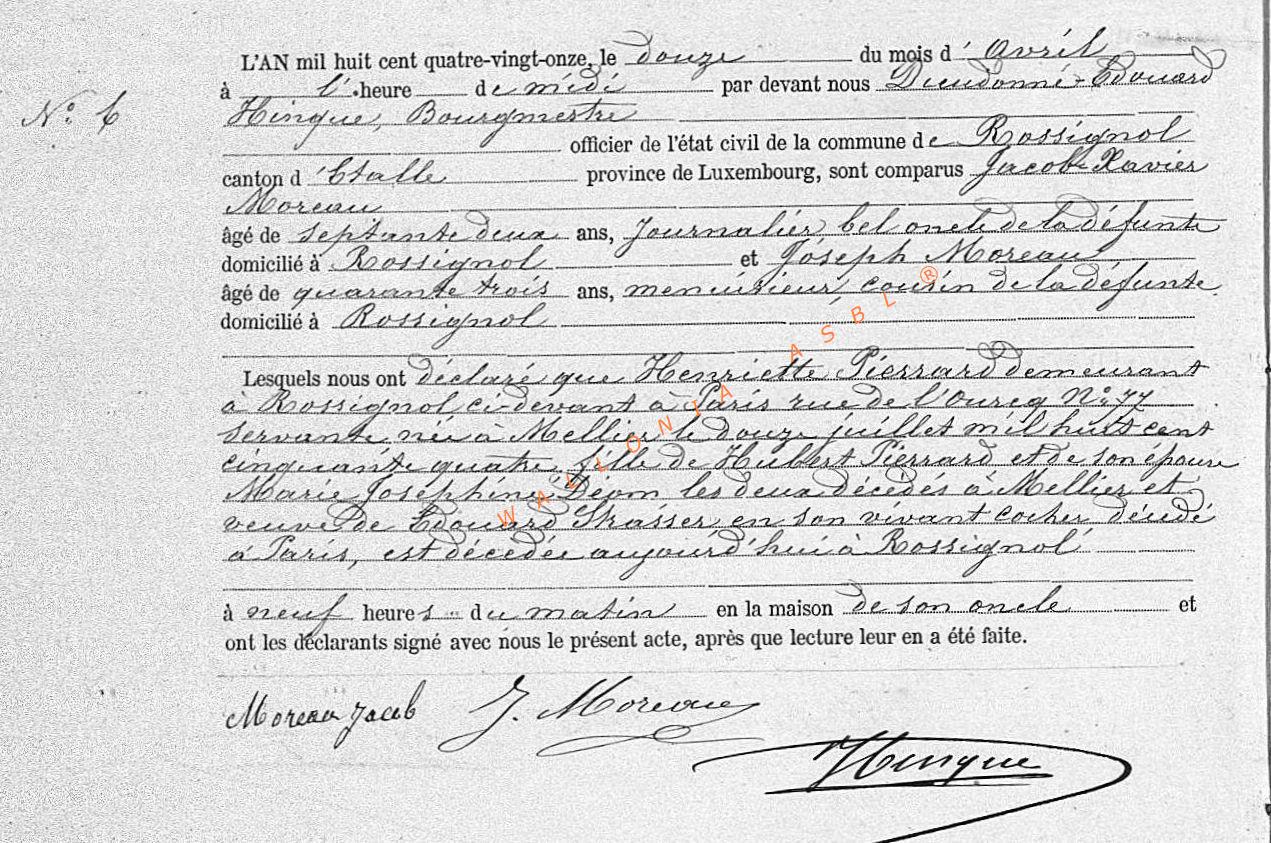 L'AN mil huit cent quatre-vingt-onze, le douze du mois d'Avril
à l'heure de midi par devant nous Dieudonné-Edouard
N° 6
Hinque, Bourgmestre
officier de l'état civil de la commune de Rossignol
canton d'Etalle province de Luxembourg, sont comparus Jacob Xavier
Moreau
âgé de septante deux ans, Journalier, bel oncle de la défunte
domicilié à Rossignol et Joseph Moreau
âgé de quarante trois ans, menuisieur, cousin de la défunte
domicilié à Rossignol
Lesquels nous ont déclaré que Henriette Pierrard demeurant
à Rossignol ci-devant à Paris rue de l'Ourcq N° 77
servante née à Mellier le douze juillet mil huit cent
cinquante quatre, fille de Hubert Pierrard et de son épouse
Marie Joséphine Déom les deux décédés à Mellier et
veuve de Edouard Strasser en son vivant cocher décédé
à Paris, est décédée aujourd'hui à Rossignol
à neuf heures du matin en la maison de son oncle et
ont les déclarants signé avec nous le présent acte, après que lecture leur en a été faite.
Moreau Jacob J. Moreau
Hinque
WALLONIA ASBL ®